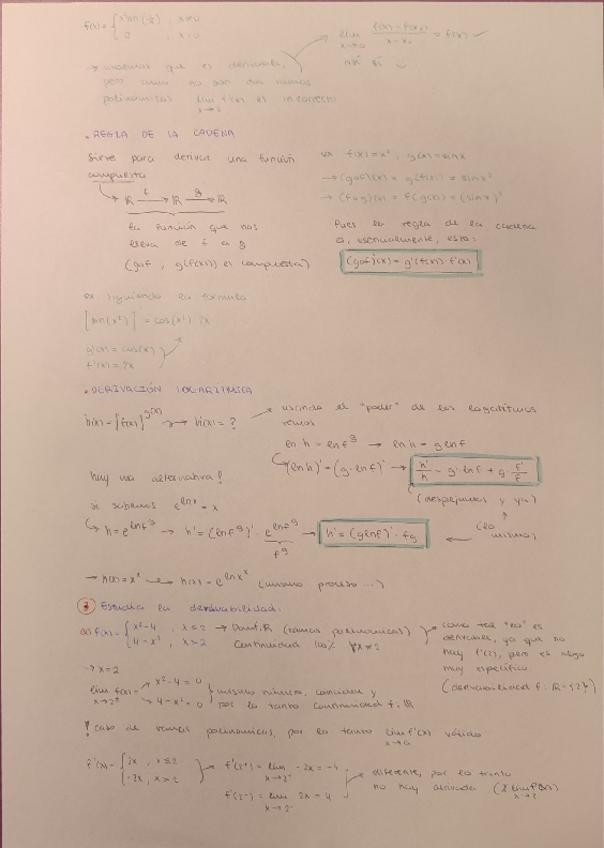 f(x) = { x² sin(1/x) , x≠0
0 , x=0
lim x→x₀ f(x) - f(x₀) / x - x₀ = f'(x) ✓
así sí
→ sabemos que es derivable,
pero como no son dos ramas
polinómicas lim f'(x) es incorrecto
• REGLA DE LA CADENA
Sirve para derivar una función
compuesta
ℝ →f ℝ →g ℝ
la función que nos
lleva de f a g
(gof, g(f(x)) es compuesta)
ex f(x) = x², g(x) = sinx
→ (gof)(x) = g(f(x)) = sinx²
→ (fog)(x) = f(g(x)) = (sinx)²
Pues la regla de la cadena
es, esencialmente, esto:
(gof)'(x) = g'(f(x)) · f'(x)
ex siguiendo la fórmula
[sin(x²)]' = cos(x²) · 2x
g'(x) = cos(x)
f'(x) = 2x
• DERIVACIÓN LOGARÍTMICA
h(x) = [f(x)]^g(x) → h'(x) = ?
usando el "poder" de los logaritmos
ln h = ln f^g → ln h = g ln f
(ln h)' = (g · ln f)' → h'/h = g' · ln f + g · f'/f
(despejamos y ya)
(lo mismo)
hay una alternativa!
si sabemos e^lnx = x
h = e^(ln f^g) → h' = (ln f^g)' · e^(ln f^g) → h' = (g ln f)' · f^g
f^g
→ h(x) = x^x → h(x) = e^(ln x^x) (mismo proceso ...)
3 Estudia la derivabilidad:
a) f(x) = { x² - 4 , x ≤ 2 → Dom f: ℝ (ramas polinómicas)
4 - x² , x > 2 Continuidad 100% ∀x ≠ 2
como tal "no" es
derivable, ya que no
hay f'(2), pero es algo
muy específico
(derivabilidad f: ℝ - {2})
→ x = 2
lim x→2 f(x) = x² - 4 = 0
4 - x² = 0
mismo número, coinciden y
por lo tanto continuidad f: ℝ
! caso de ramas polinómicas, por lo tanto lim f'(x) válido
f'(x) = { 2x , x ≤ 2
-2x , x > 2
f'(2⁺) = lim x→2⁺ -2x = -4
f'(2⁻) = lim x→2⁻ 2x = 4
diferente, por lo tanto
no hay derivada (∄ lim x→2 f'(x))